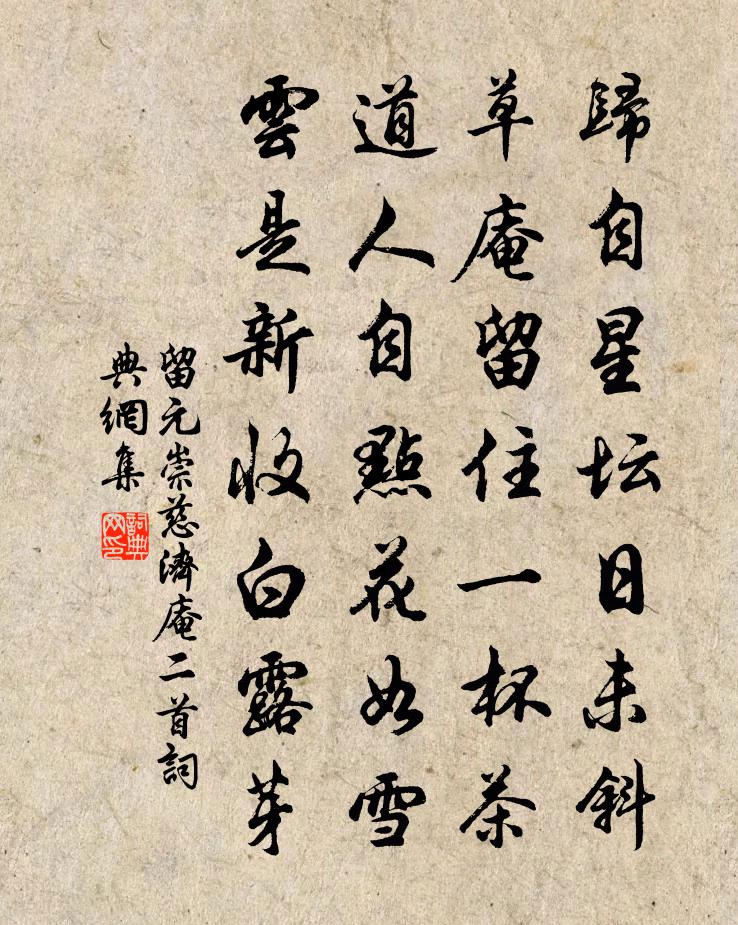 歸自星坛日未斜
草庵留住一杯茶
道人自點花如雪
雲是新收白露芽
留元崇慈濟庵二首詞
典網集
詞典
网印